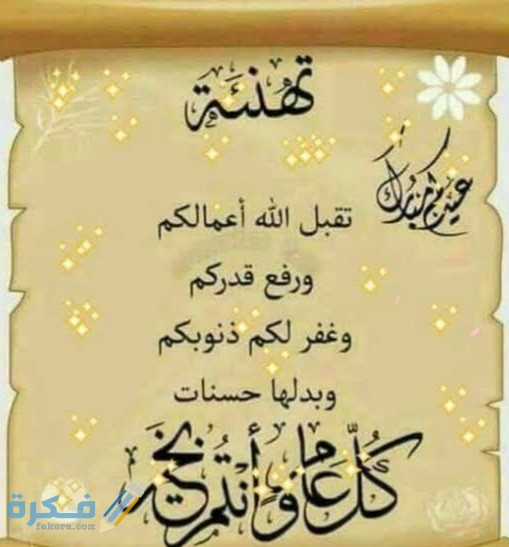 تهنئة
عيدكم مبارك
تقبل الله أعمالكم
ورفع قدركم
وغفر لكم ذنوبكم
وبدلها حسنات
كُلُّ عَامٍ وَأَنْتُمْ بِخَيْر
فكرة
fekera.com